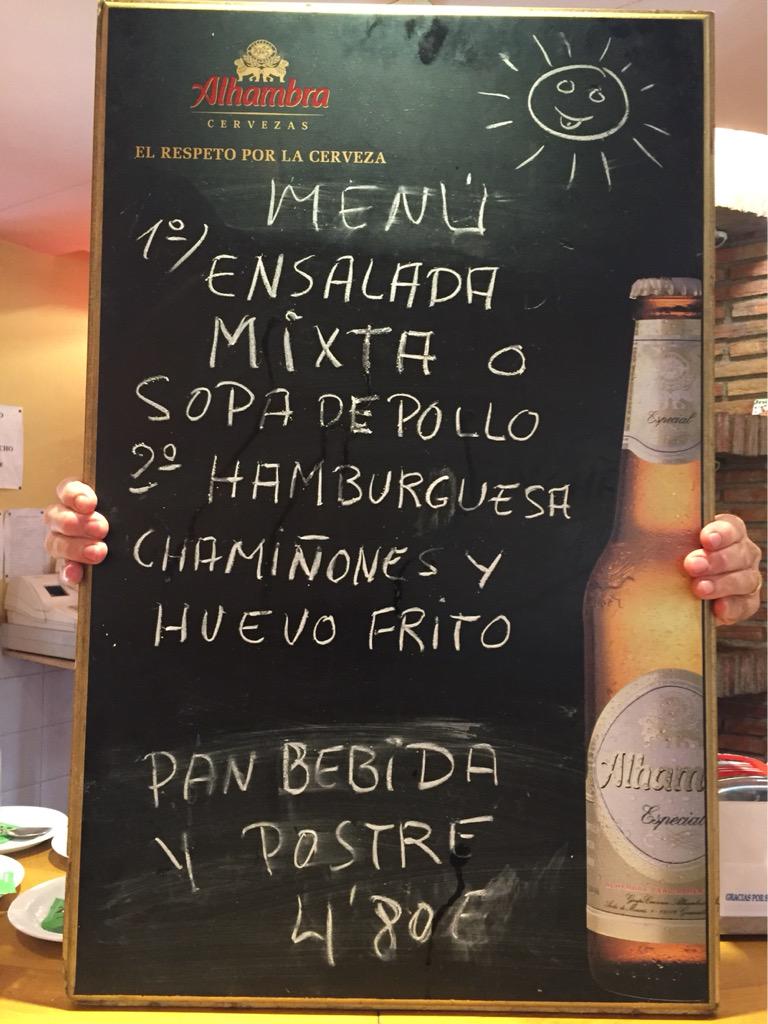 Alhambra
CERVEZAS
EL RESPETO POR LA CERVEZA
MENÚ
1º) ENSALADA
MIXTA O
SOPA DE POLLO
2º HAMBURGUESA
CHAMIÑONES Y
HUEVO FRITO
PAN BEBIDA
Y POSTRE
4'80€
Especial
Alham
Especial
GRACIAS POR S